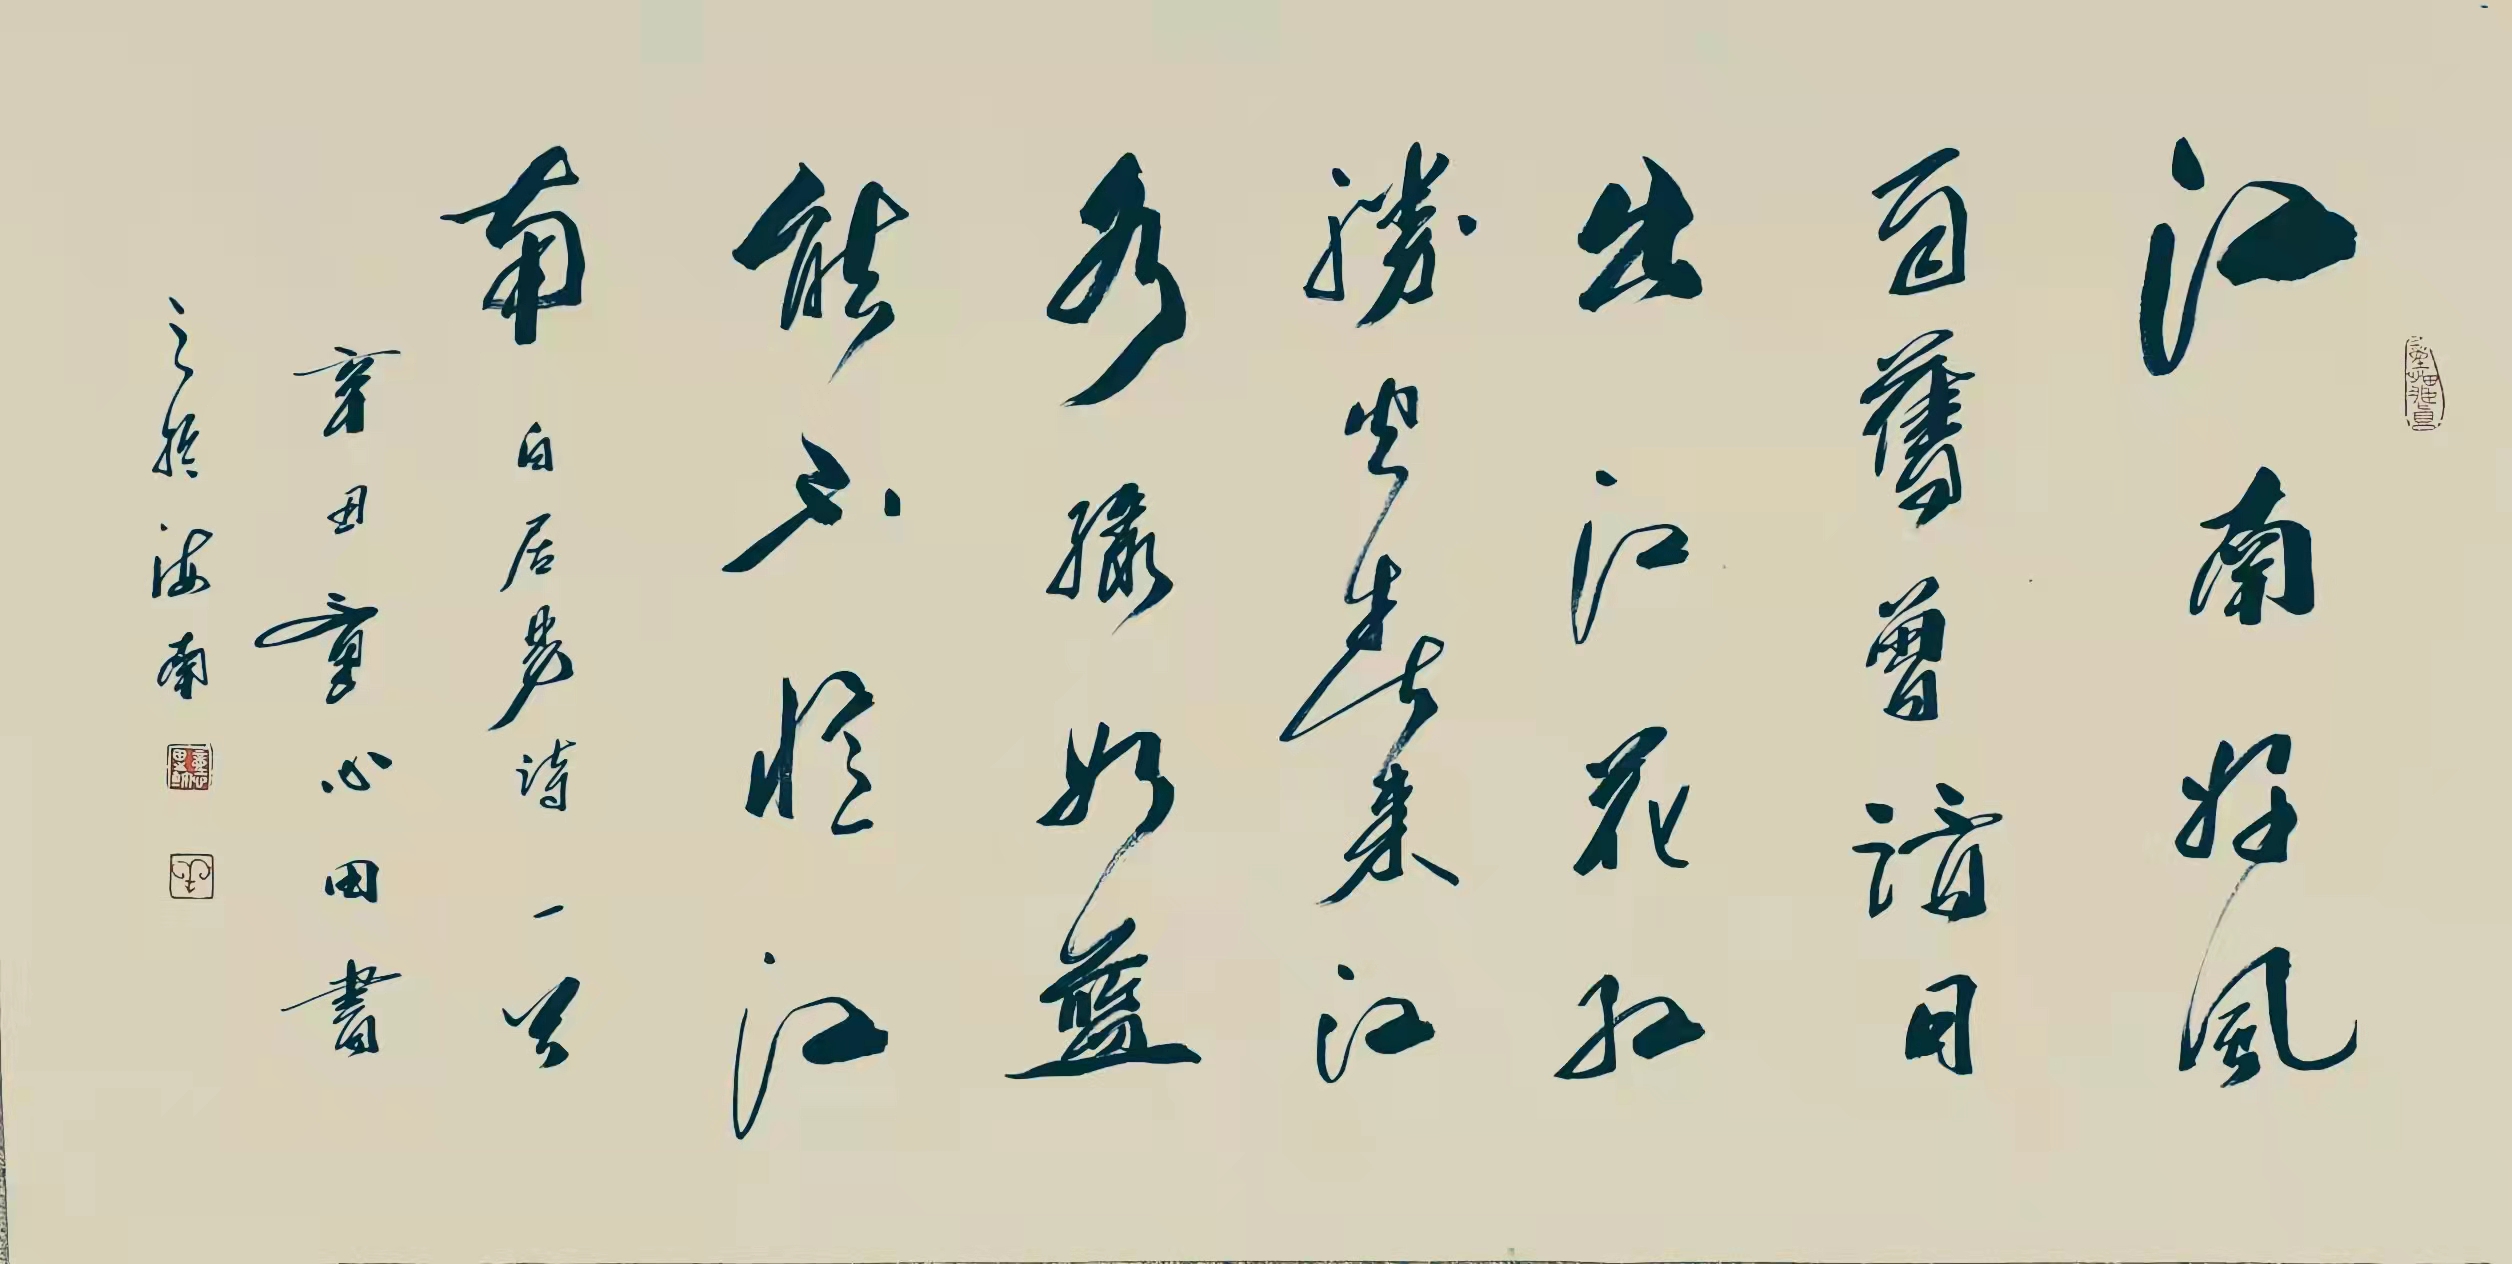 江南好風
景舊曾諳日
出江花紅
勝火春來江
水綠如藍
能不憶江
南 白居易詩一首
辛丑童心田書
之於海南